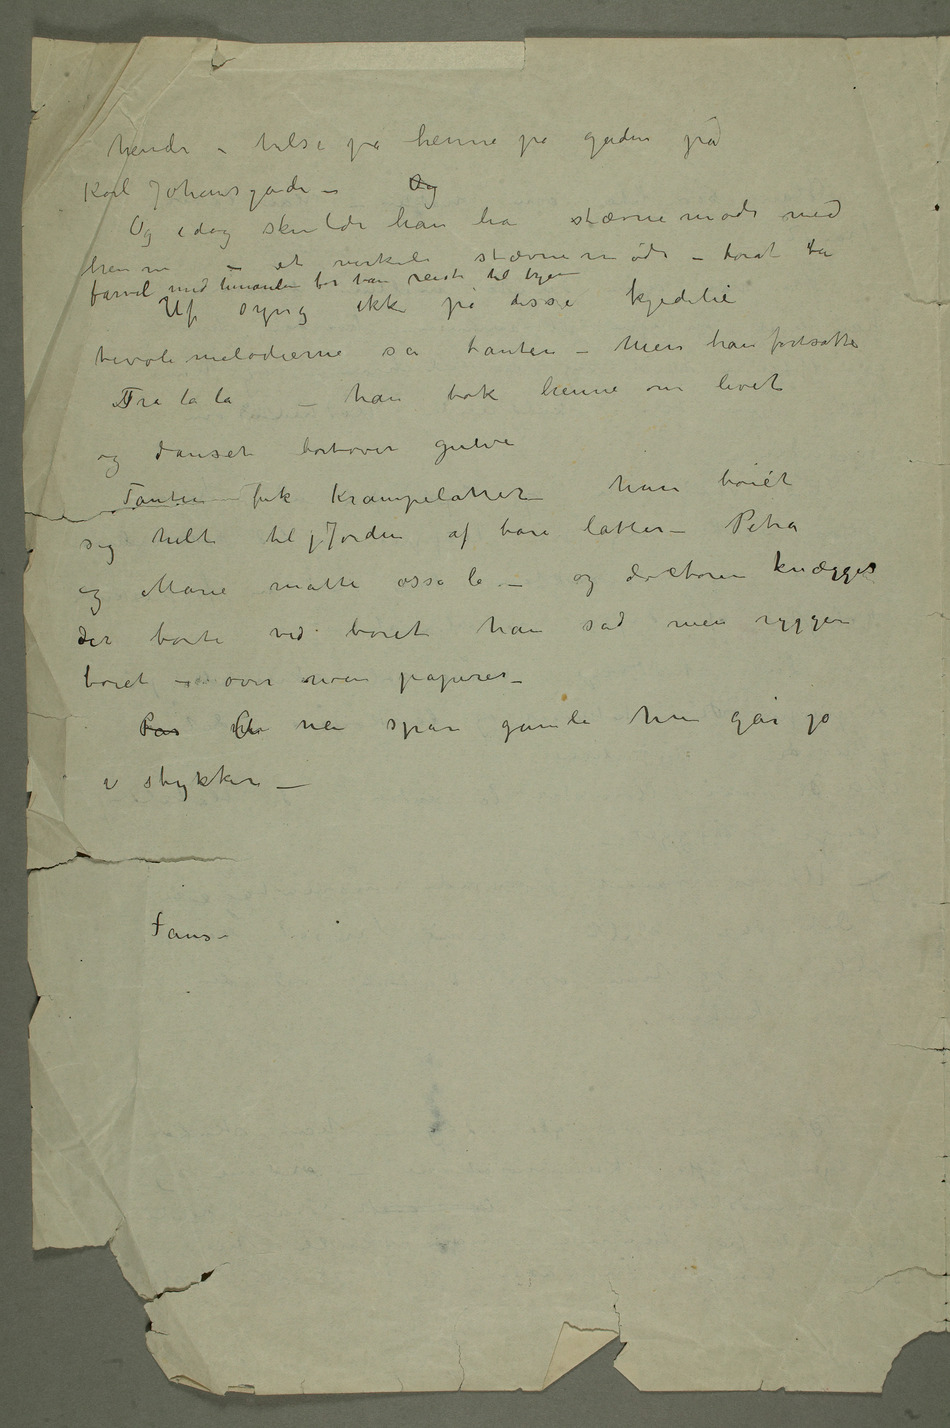 hende – hilse på henne på gaden på
Karl Johansgade – Og
Og idag skulde han ha stævnemøde med
henne – et virkeli stævnemøde – forat ta
farvel med hinanden før han reiste til byen
Uf syng ikke på disse kjedelie
tivolimelodierne sa tanten – Men han fortsatte
Tra la la – han tok henne om livet
og danset bortover gulve
Tanten fik Krampelatter han bøiet
sig helt til jorden af bare latter – Petra
og Marie måtte osså le – og doctoren knægget
der borte ved boret han sad men ryggen
boret – over noen papirer –
Pas Å nei spar gamle hun går jo
i stykker –
Fans –